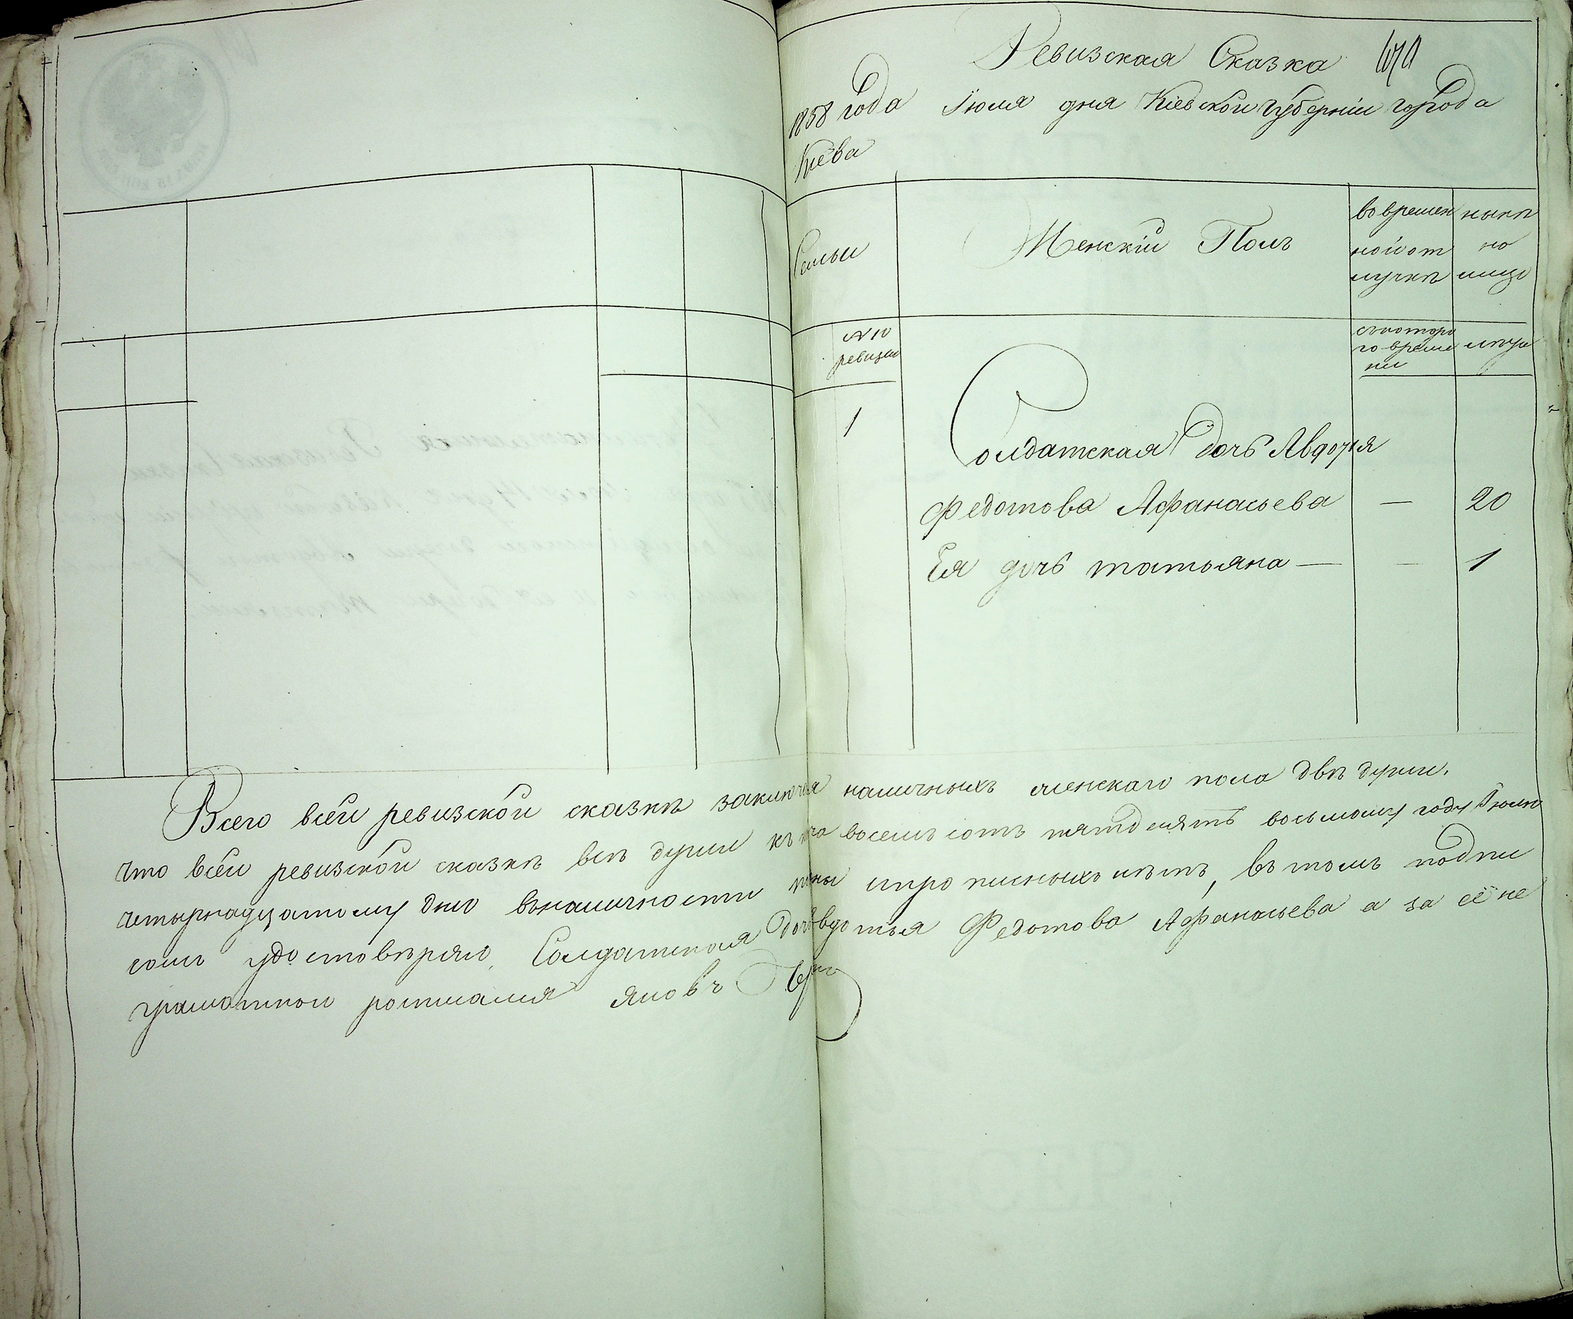 Ревизская Сказка
1858 года Іюля дня Кіевской губерніи города
Кіева
Семьи
Женскій Полъ
во времен
ной от
лучкѣ
нынѣ
на
лицо
№ 10
ревизіи
съ котора
го време
ни
лѣта
1
Солдатская дочь Авдотія
Федотова Афанасьева — 20
Ея дочь татьяна — — 1
Всего всей ревизской сказкѣ наличныхъ женскаго пола двѣ души.
что всей ревизской сказкѣ всѣ души восемъ сотъ пятдесятъ восьмому году Іюля
четырнадцатому дню вналичности и прописныхъ нѣтъ, въ томъ подпи
сомъ удостовѣряю Солдатская дочь Федотова Афанасьева а за её не
грамотной росписался яковъ